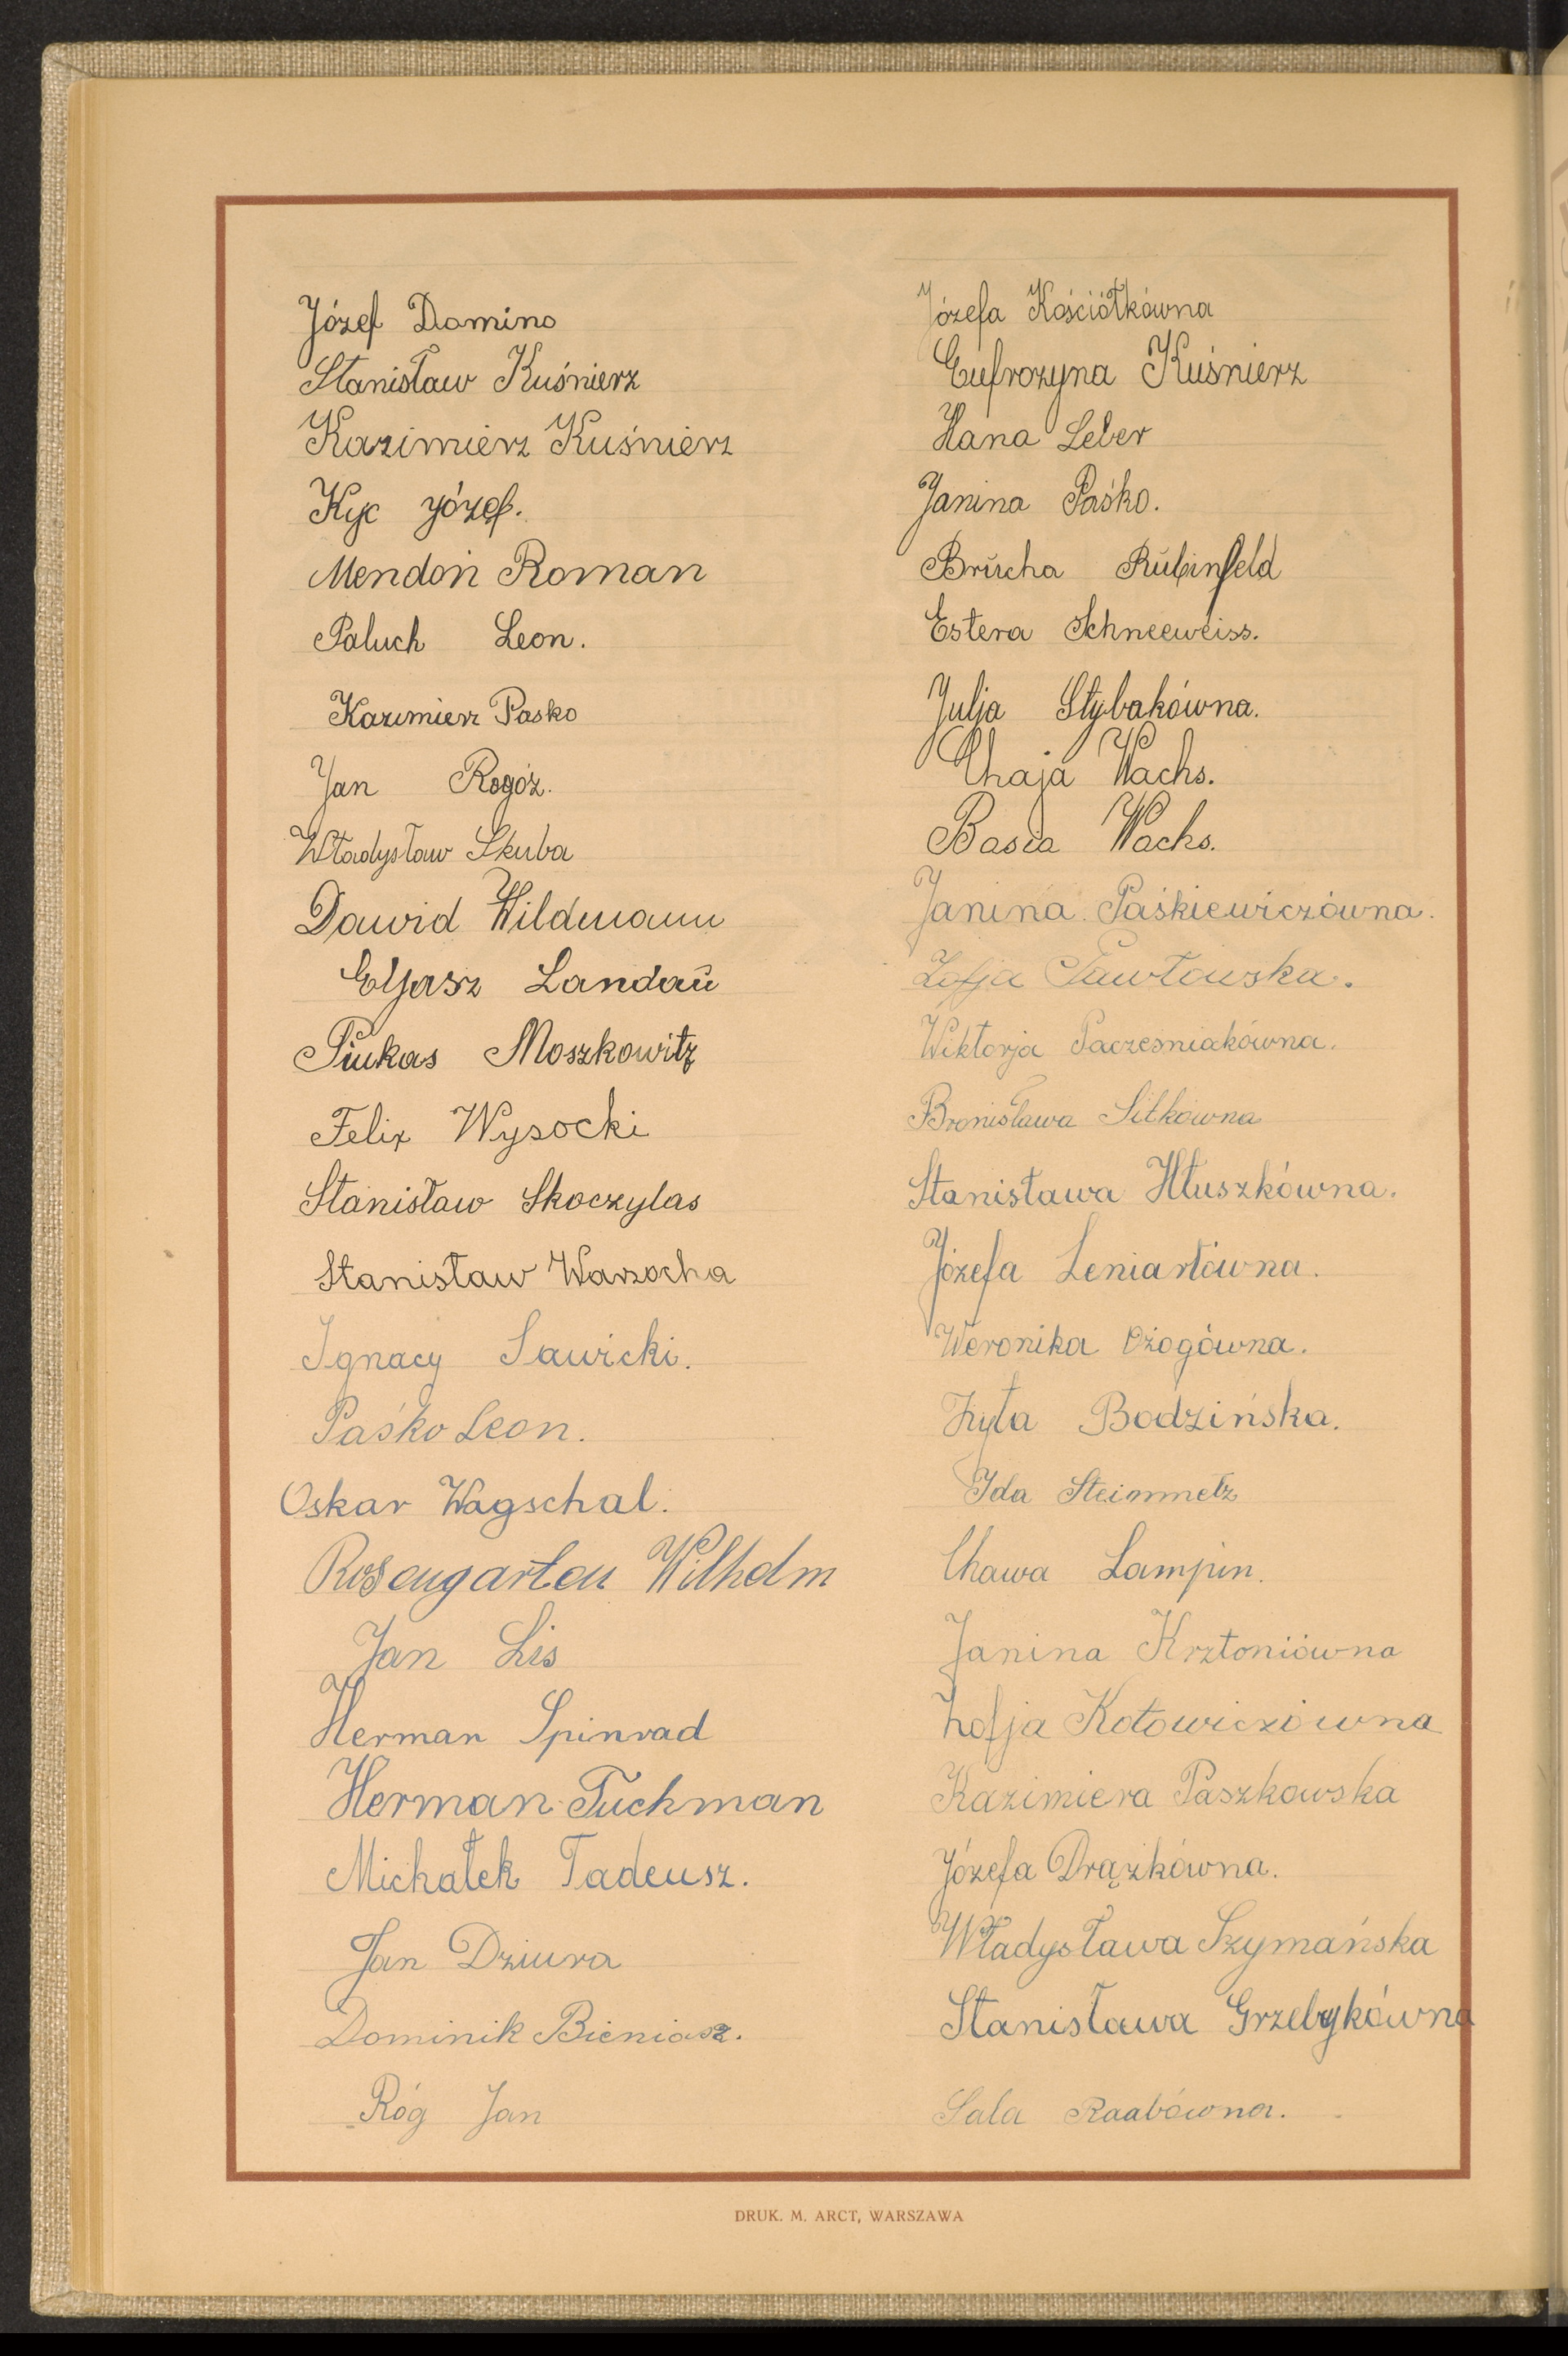 Józef Domino
Stanisław Kuśnierz
Kazimierz Kuśnierz
Kyc Józef.
Mendoń Roman
Paluch Leon.
Kazimierz Pasko
Jan Rogóż.
Władysław Skuba
Dawid Wildmann
Eljasz Landaŭ
Pinkas Moszkowitz
Felix Wysocki
Stanisław Skoczylas
Stanisław Warzocha
Ignacy Sawicki.
Paśko Leon.
Oskar Wagschal.
Rosengarten Wilhelm
Jan Lis
Herman Spinrad
Herman Tuchman
Michałek Tadeusz.
Jan Dziura
Dominik Bieniasz.
Róg Jan
Józefa Kościółkówna
Eufrozyna Kuśnierz
Hana Leber
Janina Paśko.
Brŭcha Rŭbinfeld
Estera Schneeweiss.
Julja Stybakówna.
Chaja Wachs.
Basia Wachs.
Janina Paśkiewiczówna.
Zofja Pawłowska.
Wiktorja Pacześniakówna.
Bronisława Sitkówna
Stanisława Hłuszkówna.
Józefa Leniartówna.
Weronika Ożogówna.
Zyta Bodzińska.
Ida Steinmetz
Chawa Lampin.
Janina Krztoniówna
Zofja Kotowiczówna
Kazimiera Paszkowska
Józefa Drążkówna.
Władysława Szymańska
Stanisława Grzebykówna
Sala Raabówna.
DRUK. M. ARCT, WARSZAWA